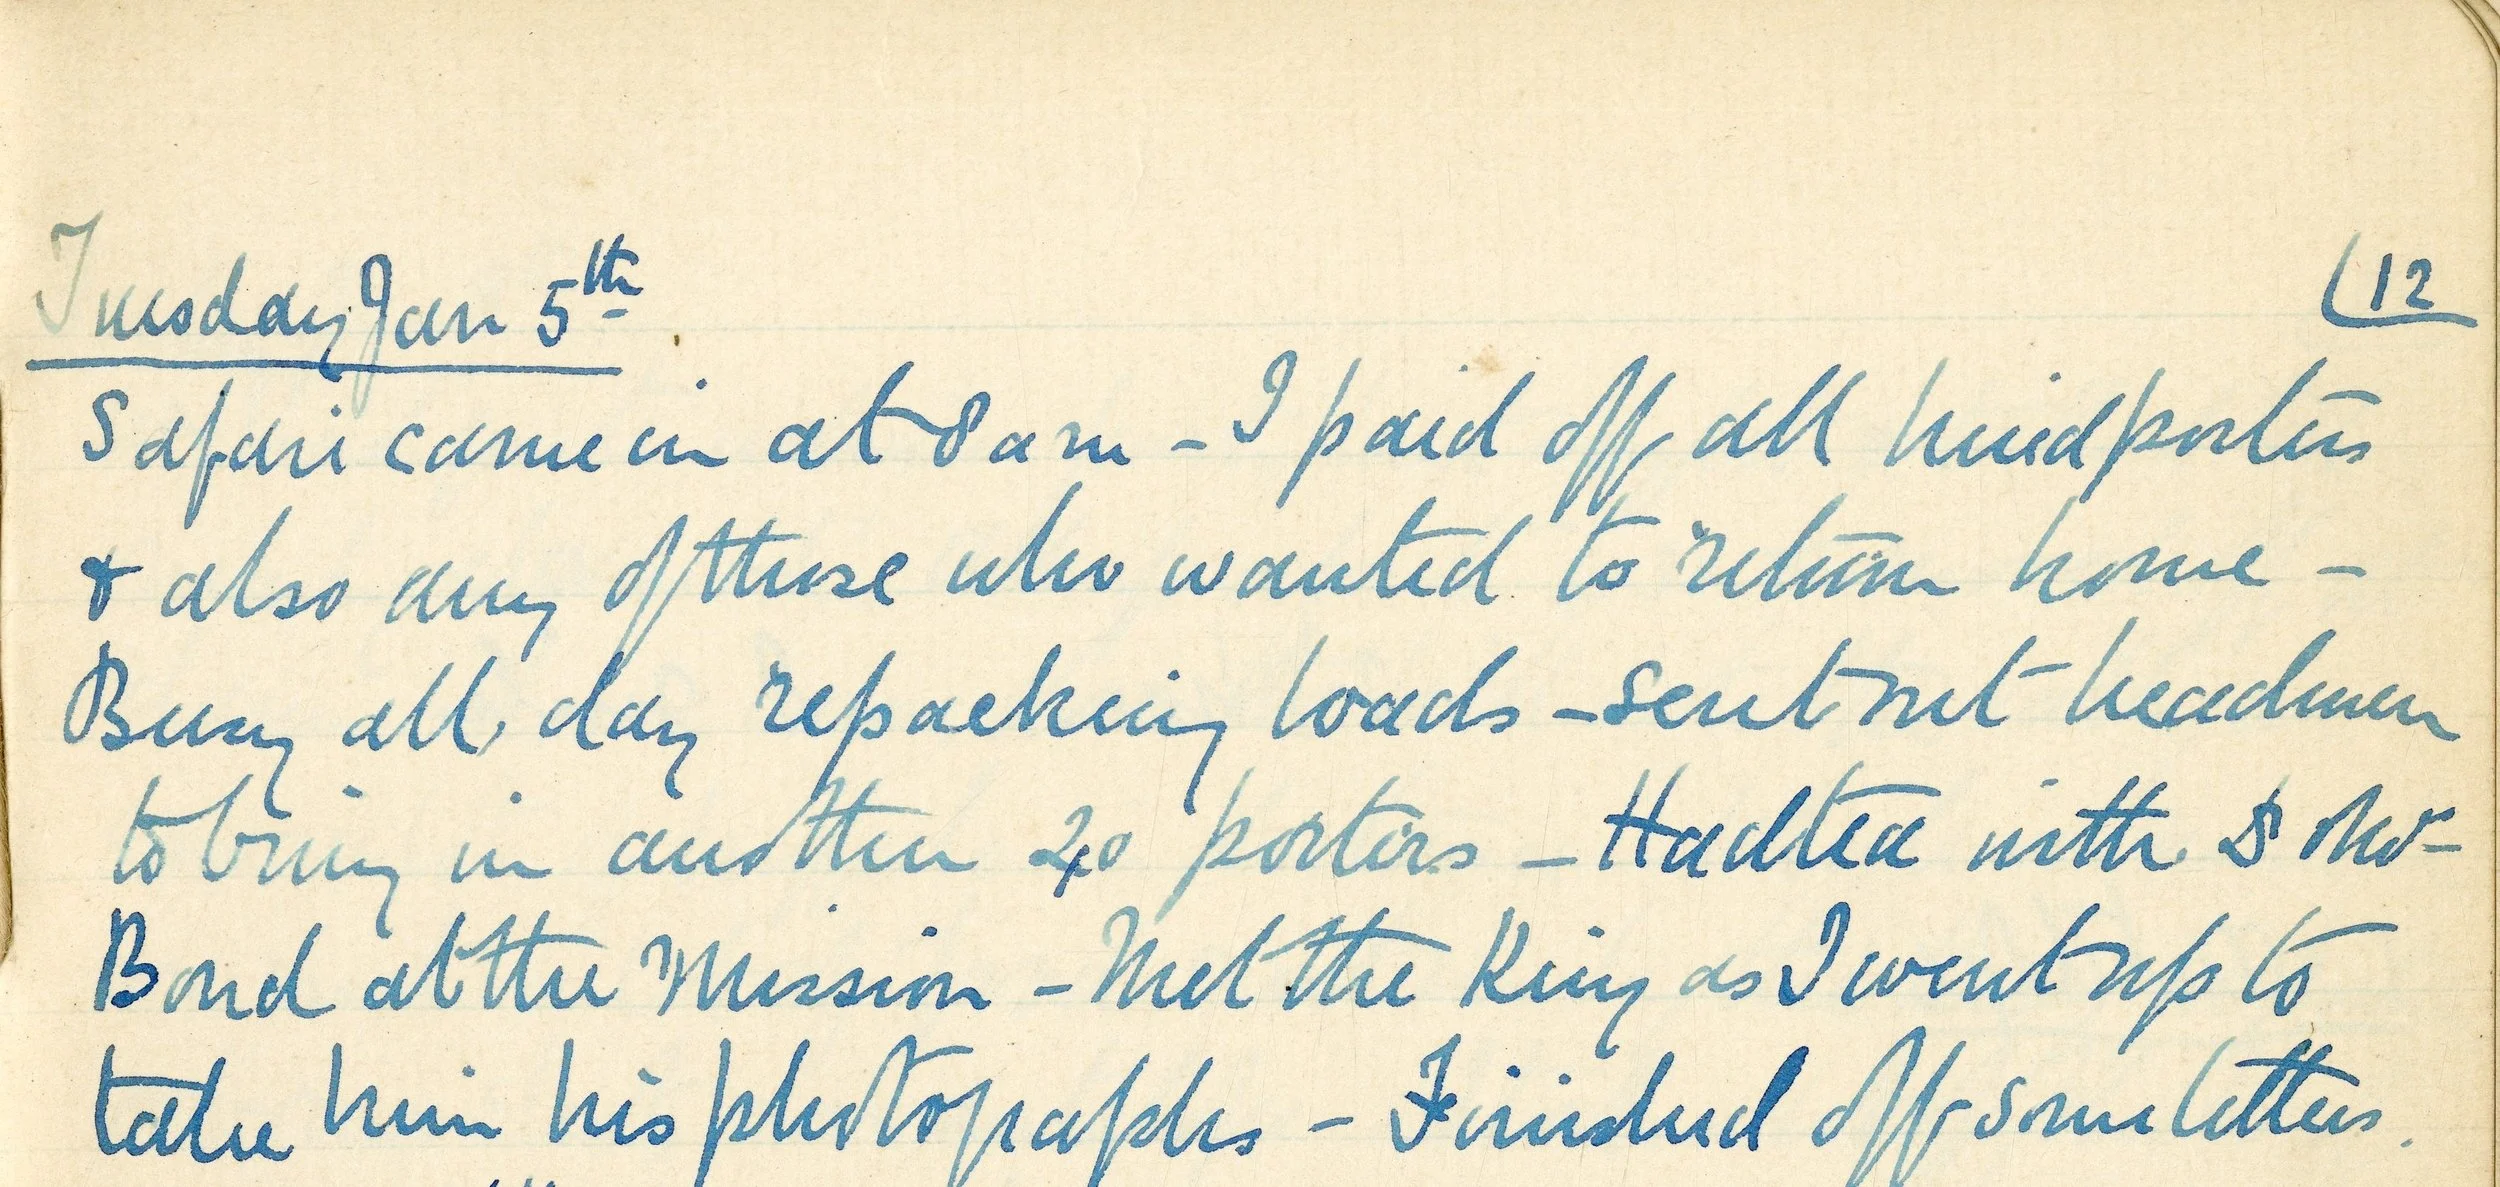 Tuesday Jan 5th
12
Safari came in at 8 am - I paid off all hired porters
& also any of those who wanted to return home -
Busy all day repacking loads - sent out headmen
to bring in another 20 porters - Had tea with
Bond at the Mission - Met the King as I went up to
take him his photographs - Finished off some letters.